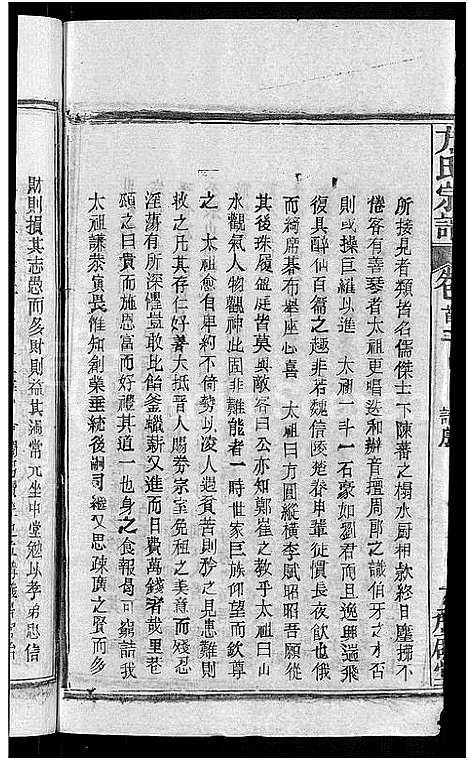 方氏宗譜
所接見者類皆名儒傑士下陳蕃之榻水厨相款終日塵拂不
倦客有善琴者太祖更唱迭和辦音擅周郎之識伯牙之才否
則或操巨羅以進 太祖一斗一石豪如劉君而且逸興遄飛
復具醉仙百篇之趣非若魏信陵楚春申輩徒慣長夜飲也俄
而綺席綦布舉盞言喜 太祖曰方圓縱橫李賦昭昭吾願從
其後珠履盈庭皆莫與敵客曰公亦知鄭崔之教乎太祖曰山
水觀氣人物觀神此固非難能者一時世家巨族仰望而欽尊
之 太祖愈自卑約不倚勢以凌人遇貧苦則矜之見患難則
救之凡其存仁好善大抵晋人賜劵宗室免租之美意而殘忍
淫蕩有所深懼豈敢比飴釜蠟薪又進而日費萬錢者哉里巷
碩之曰貴而施恩富而好禮其道一也身之食報曷可窮詰我
太祖謙恭寅畏惟知創業垂統後嗣司繼又思疎廣之賢而多
財則損其志愚而多財則益其過常兀坐中堂勉以孝弟忠信